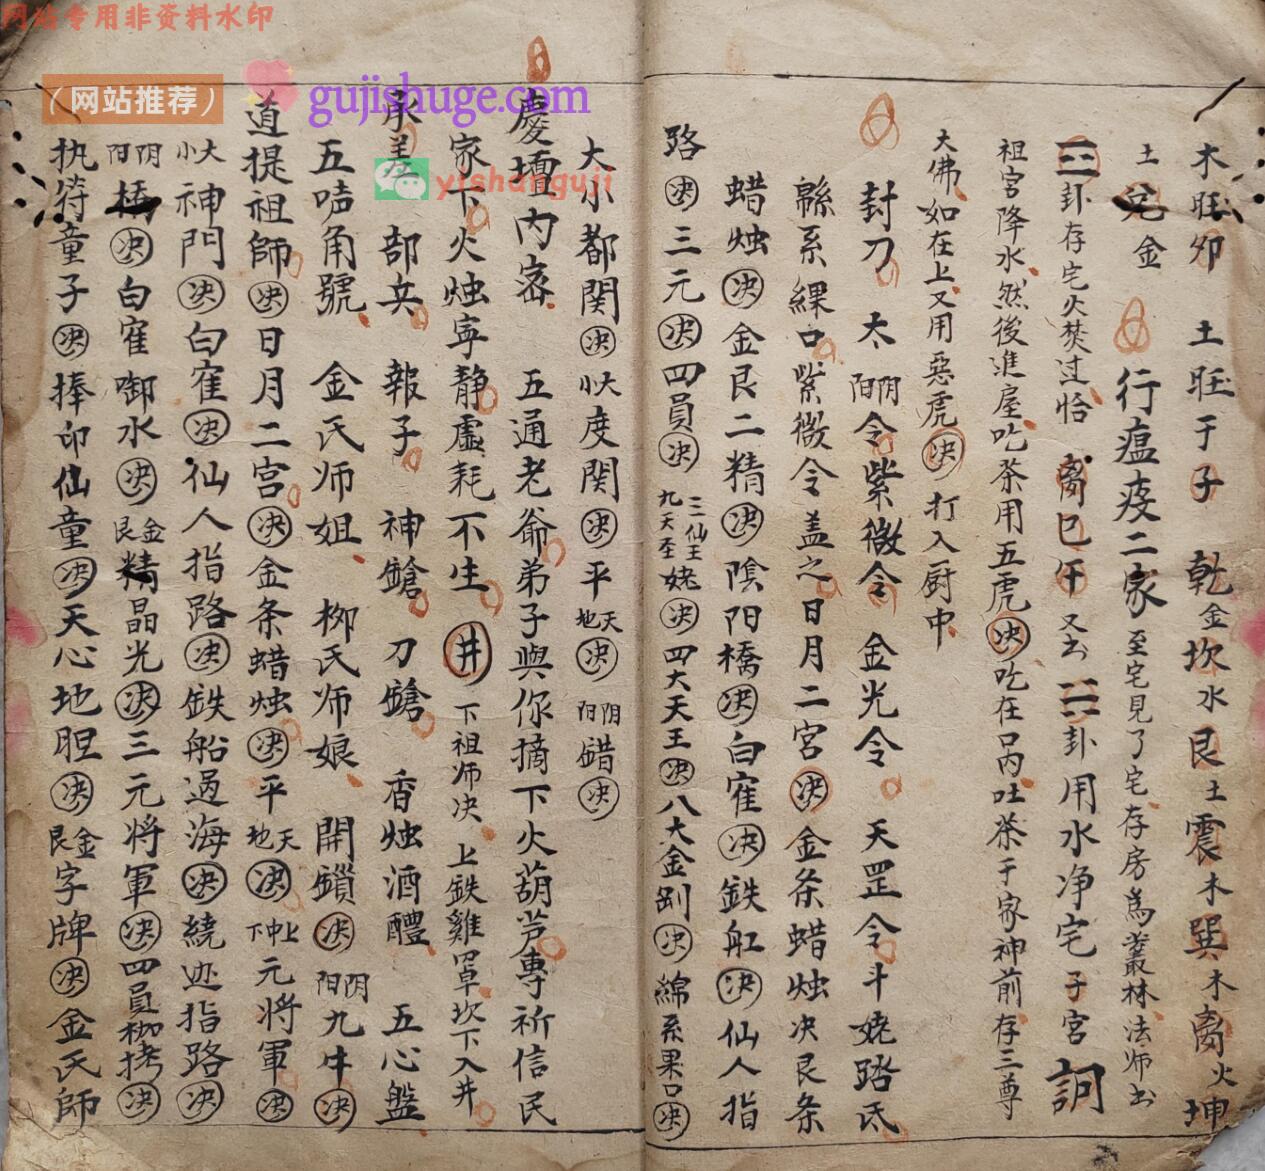 网站专用非资料水印
（网站推荐）
gujishuge.com
yishanguji
木旺卯 土旺于子 乾金坎水艮土震木巽木离火坤
土兑金 行瘟疫二家至宅見了宅存房爲叢林法师出
卦存宅火焚过恰 离巳午又出 卦用水净宅子宫
祖宫降水然後進屋吃茶用五虎決吃在口內吐茶于家神前存三尊
大佛如在上又用惡虎決打入厨中
封刀 太陰陽令紫微令 金光令 天罡令斗姥踏氐
緜系綶口紫微令盖之日月二宫決金条蜡烛决艮条
蜡烛決金艮二精決陰阳橋決白寉決鉄舡決仙人指
路決三元決四員決三仙王九天圣姥決四大天王決八大金剛決綿系果口決
大小都関決大小度関決平天地決阴阳錯決
慶壇内宻 五通老爺弟子與你摘下火葫芦專祈信民
家下火烛寕静虛耗不生井下祖师决 上鉄雞罩坎下入井
承差 部兵 報子 神鎗 刀鎗 香烛酒醴 五心盤
五咭角號 金氏师姐 柳氏师娘 開鎖決阴阳九牛決
道提祖師決日月二宫決金条蜡烛決平天地決上中下元将軍決
大小神門決白寉決仙人指路決鉄船過海決繞迯指路決
阴阳橋決白寉啣水決金艮精晶光決三元将軍決四員枷拷決
执符童子決捧印仙童決天心地胆決金艮字牌決金氏師